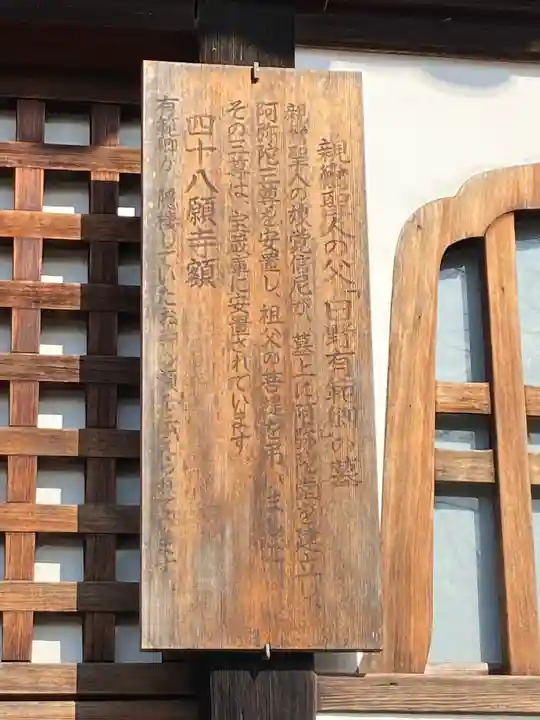 親鸞聖人の父「日野有範卿」の墓
親鸞聖人の娘覚信尼が、墓上に阿弥陀堂を建立し、
阿弥陀三尊を安置し、祖父の菩提を弔いました
その三尊は、宝蔵庫に安置されています
四十八願寺額
有範卿が、隠棲していたお寺の額と伝えられています